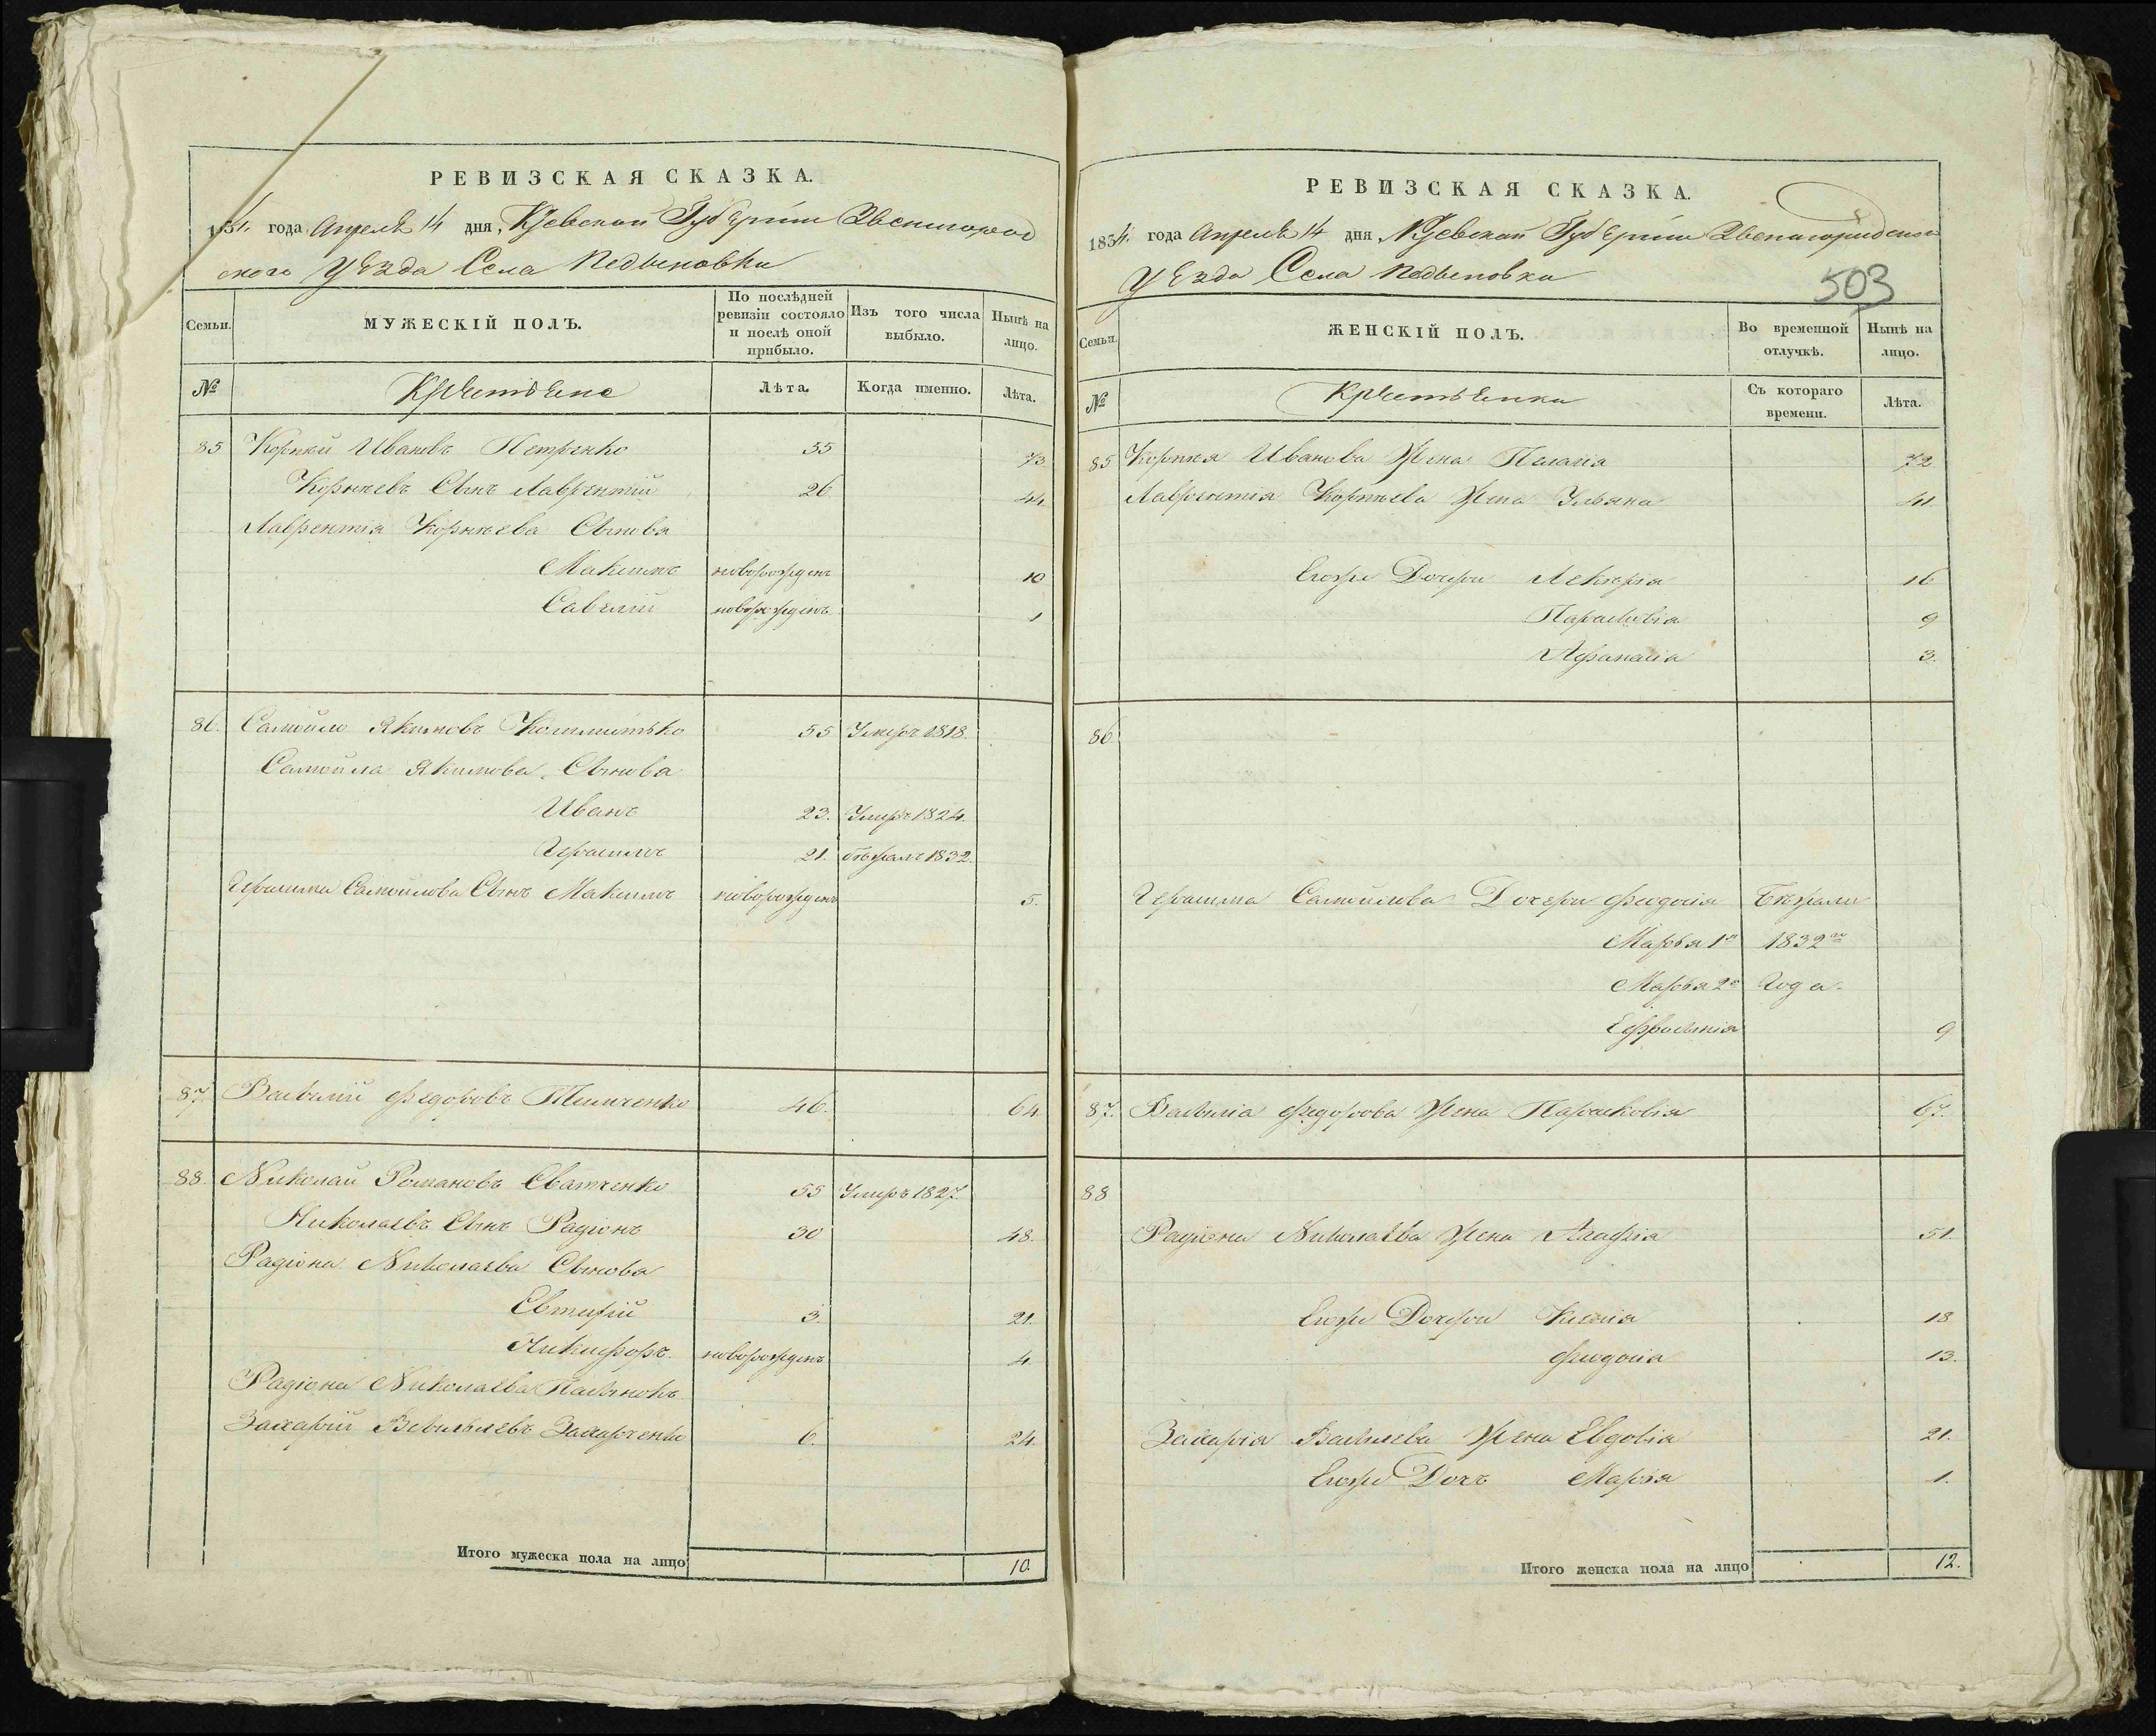 РЕВИЗСКАЯ СКАЗКА.
1834. года Апреля 14 дня, Кіевской Губерніи Звенигород
ского Уезда Села Педыновки
Семьи.
МУЖЕСКІЙ ПОЛЪ.
По послѣдней ревизіи состояло и послѣ оной прибыло.
Изъ того числа выбыло.
Нынѣ на лицо.
№
Крестьяне
Лѣта.
Когда именно.
Лѣта.
85 Корней Ивановъ Петренко 55 73.
Корнѣевъ Сынъ Лаврентій 26 44.
Лаврентія Корнѣева Сыновя
Максимъ новорожденъ 10
Савелій новорожденъ 1
86. Самойло Якимовъ 55 Умеръ 1818.
Самойла Якимова Сынова
Иванъ 23. Умеръ 1824.
Герасимъ 21. бѣжалъ 1832.
Герасима Самойлова Сынъ Максимъ новорожденъ 5.
87. Василий Федоровъ Тимченко 46. 64.
88. Николай Романовъ Сватченко 55 Умеръ 1827.
Николаевъ Сынъ Радіонъ 30 48.
Радіона Николаева Сынова
Евтифій 3. 21.
Никифоръ новорожденъ 4.
Радіона Николаева Пасынокъ
Захарій Васильевъ Захарченко 6. 24.
Итого мужеска пола на лицо 10.
РЕВИЗСКАЯ СКАЗКА.
1834. года Апреля 14 дня Кіевской Губерніи Звенигородского
Уезда Села Педыновки
503
Семьи.
ЖЕНСКІЙ ПОЛЪ.
Во временной отлучкѣ.
Нынѣ на лицо.
№
Крестьянки
Съ котораго времени.
Лѣта.
85 Корнея Иванова Жена Пелагія 72.
Лаврентія Корнѣева Жена Ульяна 41.
Егоже Дочери 16
Парасковія 9
Афанасія 3.
86.
Герасима Самойлова Дочери Феодосія Бѣжали
Марья 1я 1832го
Марья 2я Года.
Ефросинія 9
87. Василія Федорова Жена Парасковія 67.
88
Радіона Николаева Жена Агафія 51.
Егоже Дочери Ксенія 18
Феодосія 13.
Захарія Васильева Жена Евдокія 21.
Егоже Дочь Марья 1.
Итого женска пола на лицо 12.